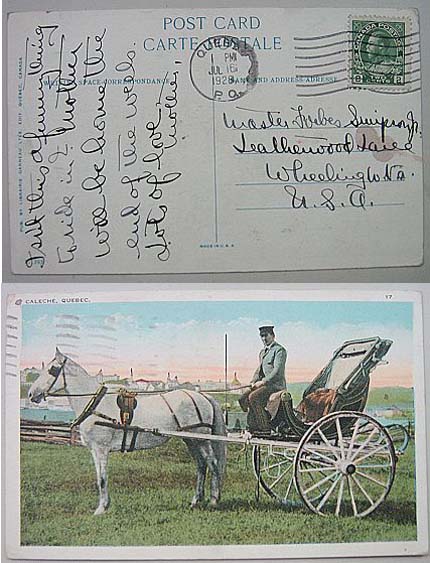 POST CARD
CARTE POSTALE
QUEBEC
1 PM
JUL 16
1928
P.Q.
SPACE CORRESPONDANCE
NAME AND ADDRESS-ADRESSE
Isn't this a funny thing
to ride in? Mother
will be home the
end of the week.
Lots of love,
Mother.
Master Forbes Simpson Jr.
Leatherwood Lane
Wheeling W. Va.
U. S. A.
PUB. BY LIBRAIRIE GARNEAU LTEE EDIT. QUEBEC, CANADA.
MADE IN U.S.A.
CALECHE, QUEBEC.
17